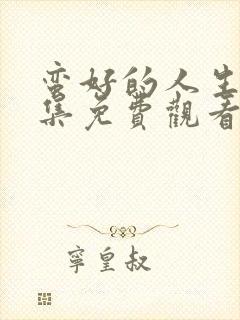 蛮好的人生
集免費觀看
寧皇叔